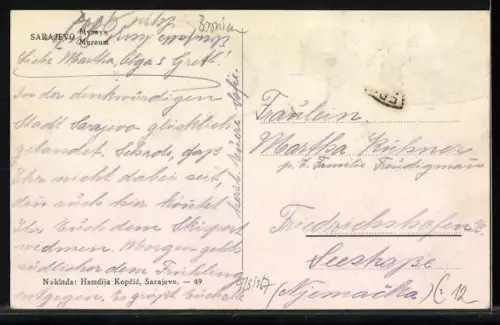 Bosnien
SARAJEVO Музеум
Muzeum
Liebe Martha, Olga & Gretl!
In der denkwürdigen
Stadt Sarajevo glücklich
gelandet. Schade, daß
Ihr nicht dabei seid,
den auch hier könntet
Ihr Euch dem Skisport
widmen. Morgen gehts
südlicher dem Frühling
entgegen. Es grüßt Euch
Naklada: Hamdija Kopčić, Sarajevo. — 49
Fräulein
Martha
p. Familie
Friedrichshafen
Seestraße
(Njemačka)
C 12